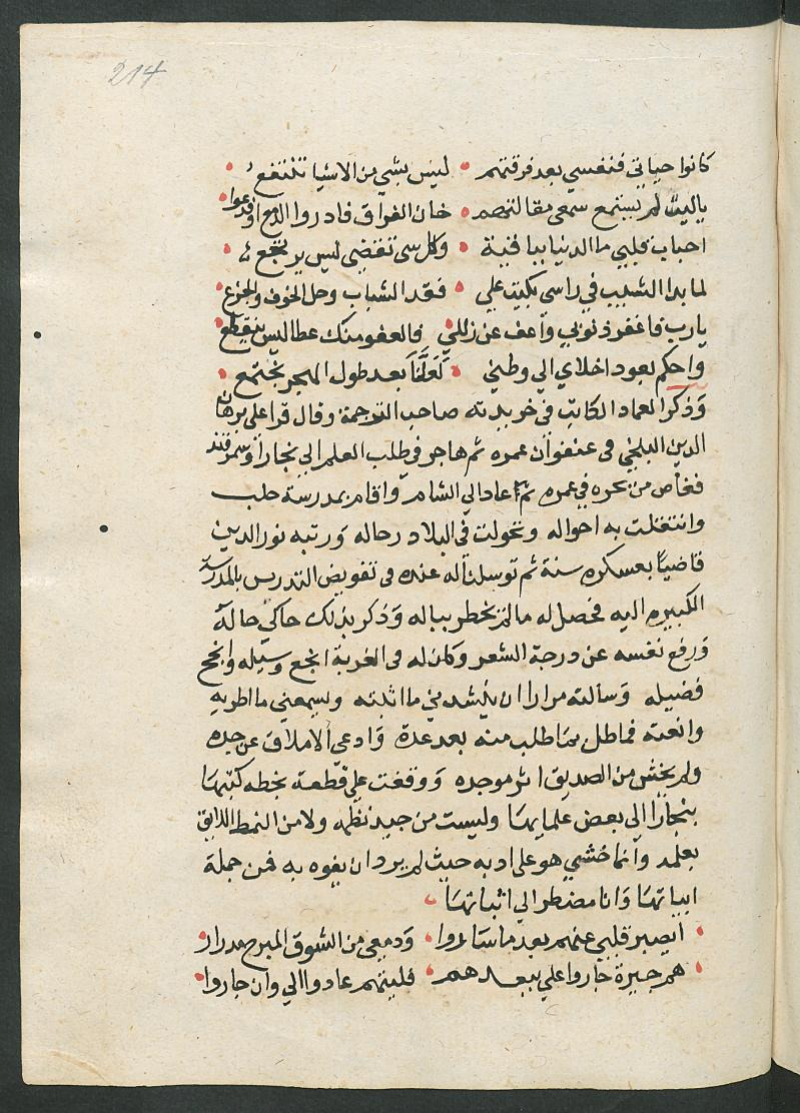 214
كانوا حياتي فنفسي بعد فرقتهم • ليس بشي من الاشيا تنتفع
ياليت لم يستمع سمعي مقالتهم • خان الفراق فادروا الدمع اودعوا
احباب قلبي ما الدنيا بباقية • وكل شي تقضى ليس يرتجع
لما بدا الشيب في راسي بكيت علي • فقد الشباب وحل الخوف والجزع
يارب فاغفر ذنوبي واعف عن زللي فالعفو منك عطا ليس ينقطع
واحكم بعود اخلاي الي وطني • لعلنا بعد طول الهجر نجتمع
وذكر العماد الكاتب في خريدته صاحب الترجمة وقال قرا علي برهان
الدين البلخي في عنفوان عمره ثم هاجر في طلب العلم الي بخارا وسمرقند
فغاص من بحره في غمره ثم عاد الي الشام واقام بمدرسة حلب
وانتقلت به احواله وتحولت في البلاد رحاله ورتبه نور الدين
قاضيا بعسكره سنة ثم توسلنا له عنده في تفويض التدريس بالمدرسة
الكبيره اليه فحصل له مالم يخطر بباله وذكر بذلك حاكي حاله
ورفع نفسه عن درجة الشعر وكان له في الغربة انجع وسيله وانجح
فضيله وسالته مرارا ان ينشدني ما اثبته ويسمعني ما اطربه
وانعته فماطل بما طلب منه بعد عدة وادعي الاملاق عن جده
ولم يخش من الصديق اثر موجده ووقعت علي قطعة بخطه كتبها
ببخارا الي بعض علمايها وليست من جيد نظمه ولا من النمط اللايق
بعلمه وانما خشي هو علي ادبه حيث لم يرد ان يفوه به فمن جملة
ابياتها وانا مضطر الي اثباتها
• ايصبر قلبي عنهم بعد ما ساروا • ودمعي من الشوق المبرح مدرار •
• هم جيرة جاروا علي ببعدهم • فليتهم عادوا الي وان جاروا •